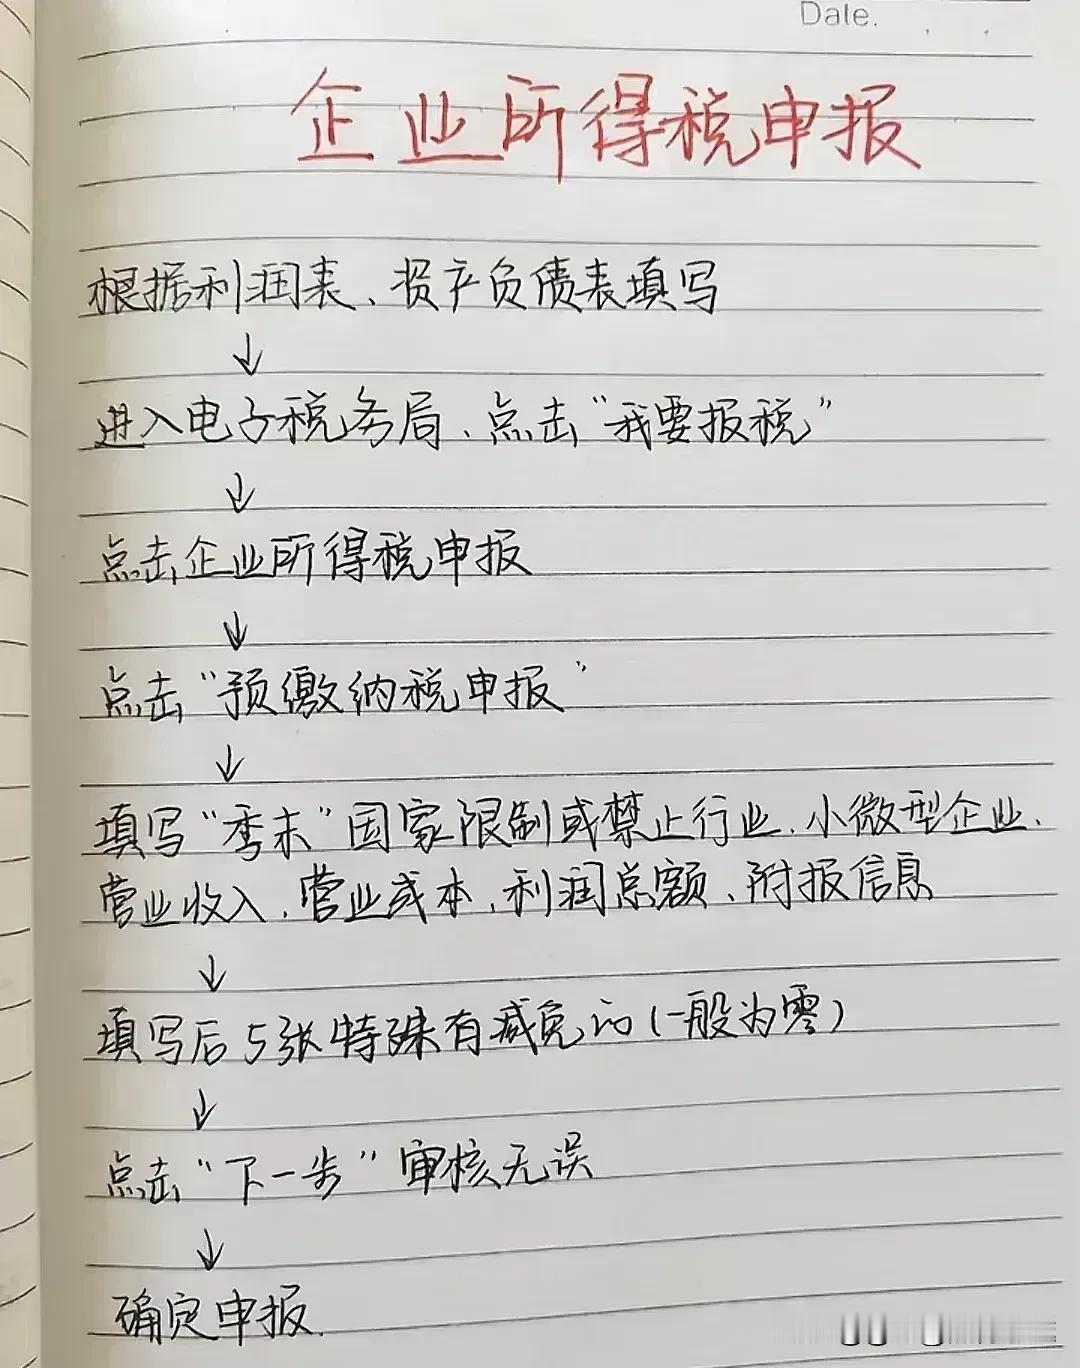 Date.
企业所得税申报
根据利润表、资产负债表填写
↓
进入电子税务局、点击“我要报税”
↓
点击企业所得税申报
↓
点击“预缴纳税申报”
↓
填写“季末”国家限制或禁止行业、小微型企业、
营业收入、营业成本、利润总额、附报信息
↓
填写后5张特殊有减免的(一般为零)
↓
点击“下一步”审核无误
↓
确定申报.